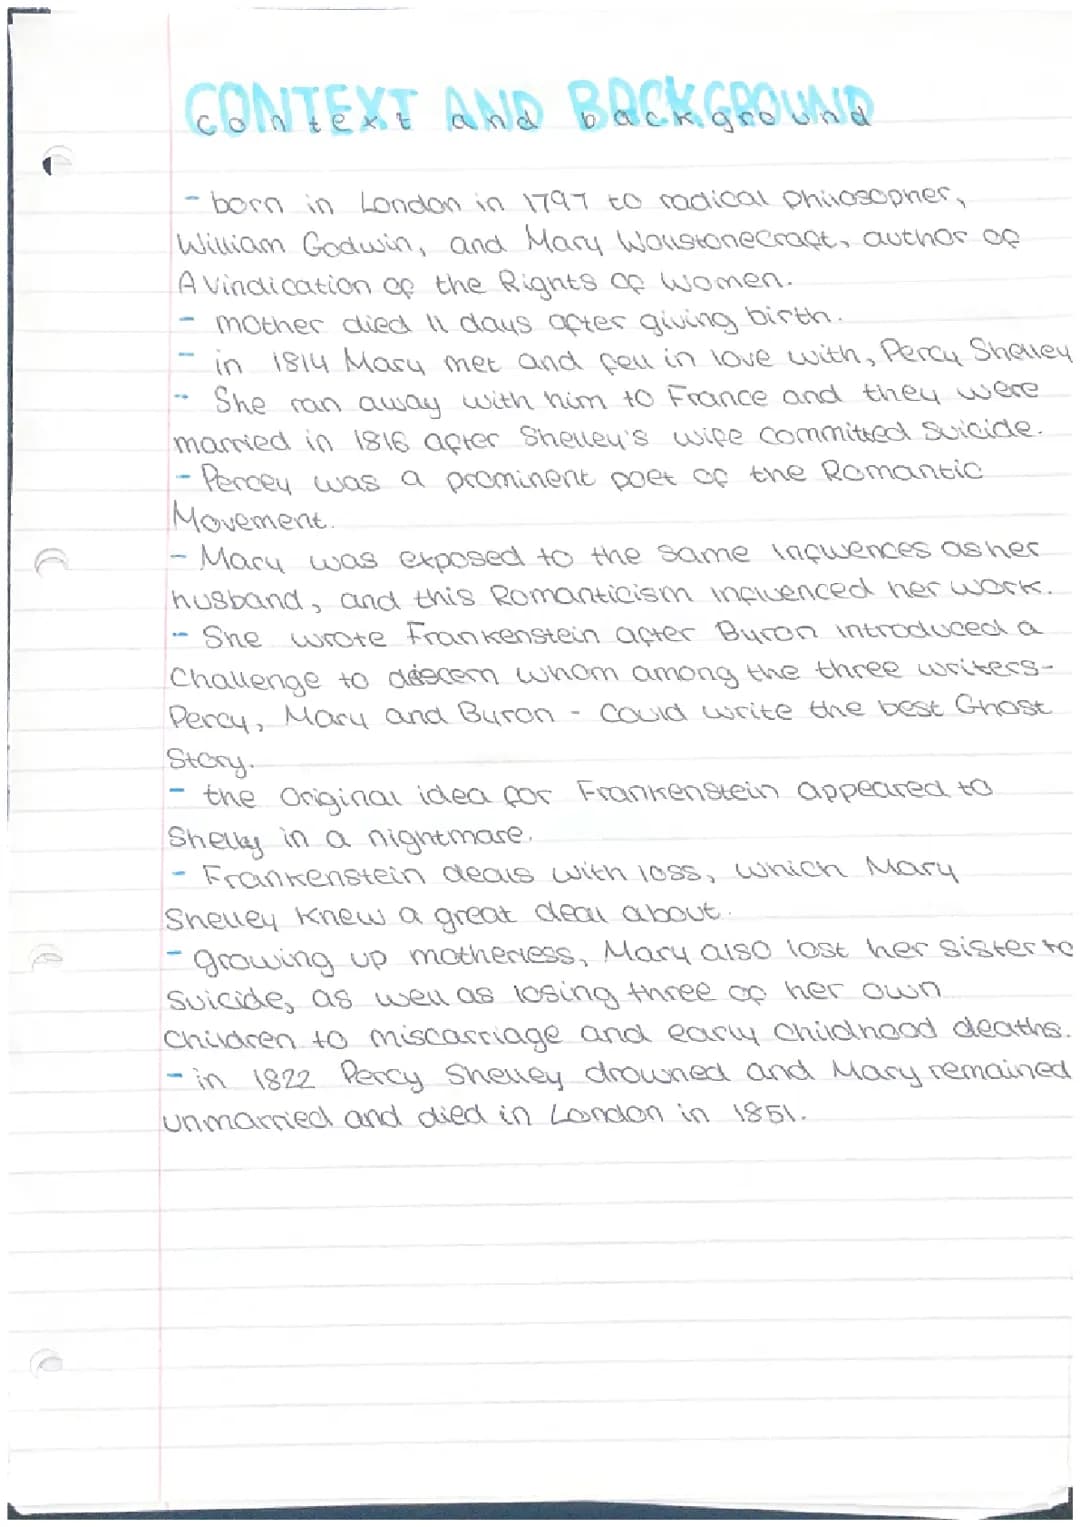 CONTEXT AND BACKGROUND
context and background
- born in London in 1797 to radical philosopher,
William Godwin, and Mary Wollstonecraft, author of
A Vindication of the Rights of Women.
- mother died 11 days after giving birth.
- in 1814 Mary met and fell in love with, Percy Shelley
- She ran away with him to France and they were
married in 1816 after Shelley's wife committed Suicide.
- Percey was a prominent poet of the Romantic
Movement.
- Mary was exposed to the same influences as her
husband, and this Romanticism influenced her work.
- She wrote Frankenstein after Byron introduced a
Challenge to discern whom among the three writers-
Percy, Mary and Byron - Could write the best Ghost
Story.
- the Original idea for Frankenstein appeared to
Shelley in a nightmare.
- Frankenstein deals with loss, which Mary
Shelley Knew a great deal about.
- growing up motherless, Mary also lost her sister to
Suicide, as well as losing three of her own
Children to miscarriage and early Childhood deaths.
- in 1822 Percy Shelley drowned and Mary remained
unmarried and died in London in 1851.